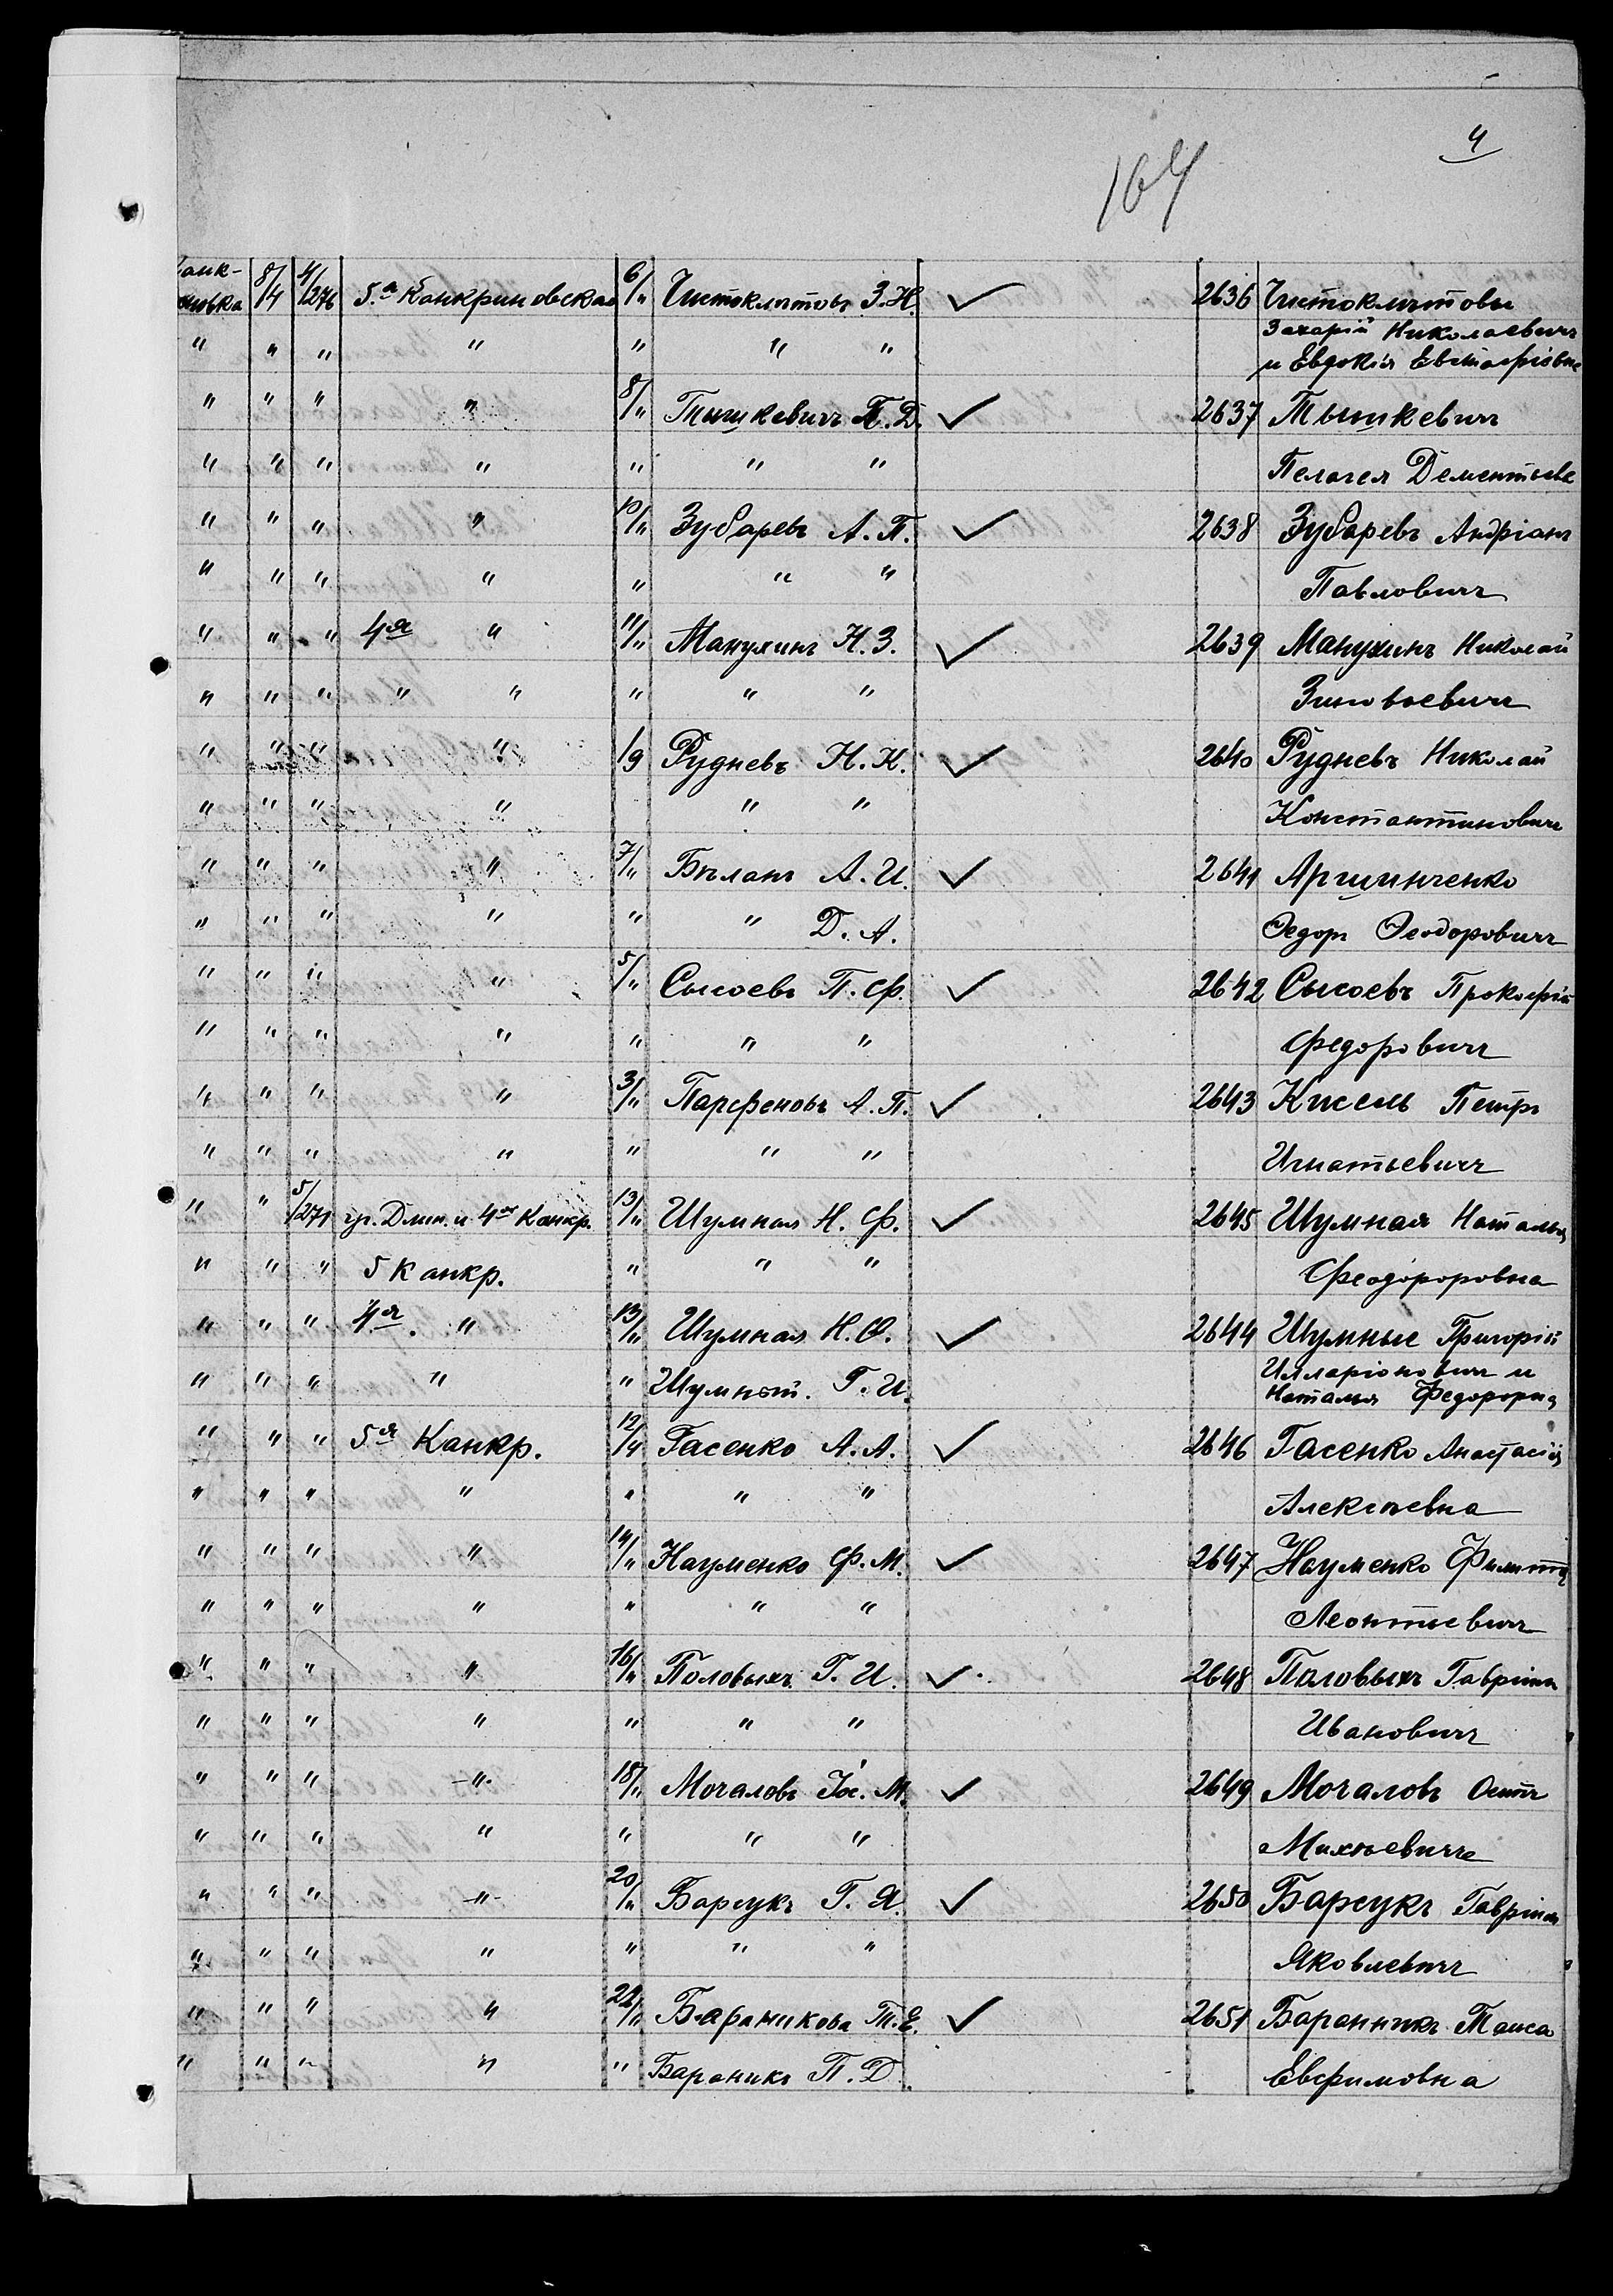 4
164
анк- 8/4 4/276 5.я Канкриновская 6/" Чистоклетовъ З.Н. ✓ 2636 Чистоклетовы
новка
" " " " " " " Захарій Николаевичъ
и Евдокія Евстафіевна
" " " " 8/" Тышкевичъ П.Д. ✓ 2637 Тышкевичъ
" " " " " " " Пелагея Дементьевна
" " " " 10/" Зубаревъ А.П. ✓ 2638 Зубаревъ Андріанъ
" " " " " " " Павловичъ
" " " 4я " 11/" Манухинъ Н.З. ✓ 2639 Манухинъ Николай
" " " " " " " " Зиновьевичъ
" " " " /9 Рудневъ Н.К. ✓ 2640 Рудневъ Николай
" " " " " " Константиновичъ
" " " " 7/" Бѣланъ А.И. ✓ 2641 Аршинченко
" " " " " " Д.А. Федоръ Феодоровичъ
" " " " 5/" Сысоевъ П.Ф. ✓ 2642 Сысоевъ Прокофій
" " " " " " " Федоровичъ
" " " " 3/" Парфеновъ А.П. ✓ 2643 Кисель Петръ
" " " " " " " Игнатьевичъ
" " 5/271 уг. Длин. и 4я Канкр. 13/" Шумная Н.Ф. ✓ 2645 Шумная Наталья
" " " 5 Канкр. " " " Феодороровна
" " " 4я. " 13/" Шумная Н.Ф. ✓ 2644 Шумные Григорій
" " " " " Шумный. Г.И. Илларіоновичъ и
Наталья
" " " 5я Канкр. 12/4 Гасенко А.А. ✓ 2646 Гасенко Анастасія
" " " " " " " Алексѣевна
" " " " 14/" Науменко Ф.М. ✓ 2647 Науменко
" " " " " " " Леонтьевичъ
" " " " 16/" Половыхъ Г.И. ✓ 2648 Половыхъ Гавріилъ
" " " " " " " Ивановичъ
" " " -"- 18/" Мочаловъ Іос. М. ✓ 2649 Мочаловъ Осипъ
" " " " " " " Михѣевичъ
" " " -"- 20/" Барсукъ Г.Я. ✓ 2650 Барсукъ Гавріилъ
" " " " " " " Яковлевичъ
" " " " 22/" Бараникова Т.Е. ✓ 2651 Баранникъ Таиса
" " " " " Бараникъ П.Д. Евфимовна